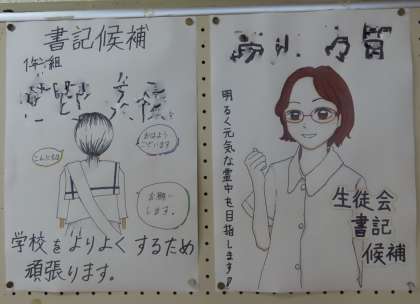 書記候補
1年 組
おはよう
ございます
こんにちは
お願い
します。
学校をよりよくするため
頑張ります。
明るく元気な霊中を目指します!
生徒会
書記
候補